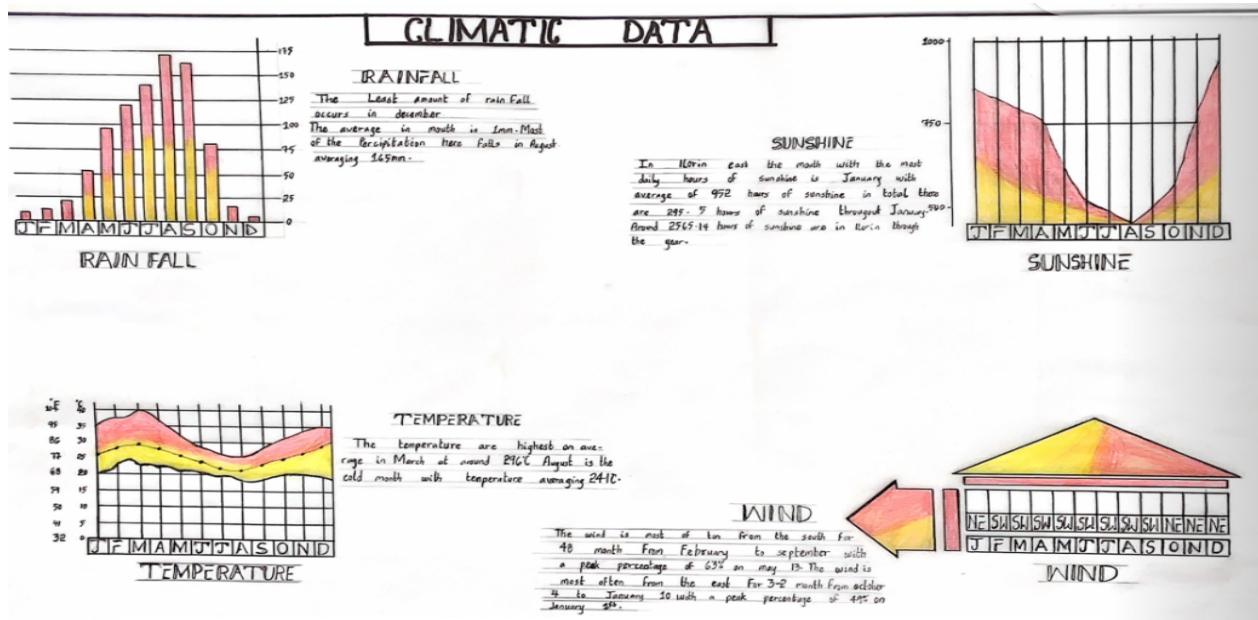 CLIMATIC DATA
175
150
125
100
75
50
25
0
J F M A M J J A S O N D
RAIN FALL
RAINFALL
The Least amount of rain Fall
occurs in december
The average in mouth is 1mm. Most
of the Percipitation here Falls in August
averaging 165mm.
SUNSHINE
In ILorin east the month with the most
daily hours of sunshine is January with
average of 952 hours of sunshine in total there
are 295.5 hours of sunshine througout January.
Around 2565.14 hours of sunshine are in Ilorin through
the year.
1000
750
500
J F M A M J J A S O N D
SUNSHINE
°F °C
104 40
95 35
86 30
77 25
68 20
59 15
50 10
41 5
32 0
J F M A M J J A S O N D
TEMPERATURE
TEMPERATURE
The temperature are highest on ave-
rage in March at around 29.6°C August is the
cold month with temperature averaging 24.1C.
WIND
The wind is most of ten from the south for
48 month From February to september with
a peak percentage of 63% on may 13. The wind is
most often from the east For 3-2 month from october
4 to January 10 with a peak percentage of 49% on
January 1st.
NE SW SW SW SW SW SW SW SW NE NE NE
J F M A M J J A S O N D
WIND